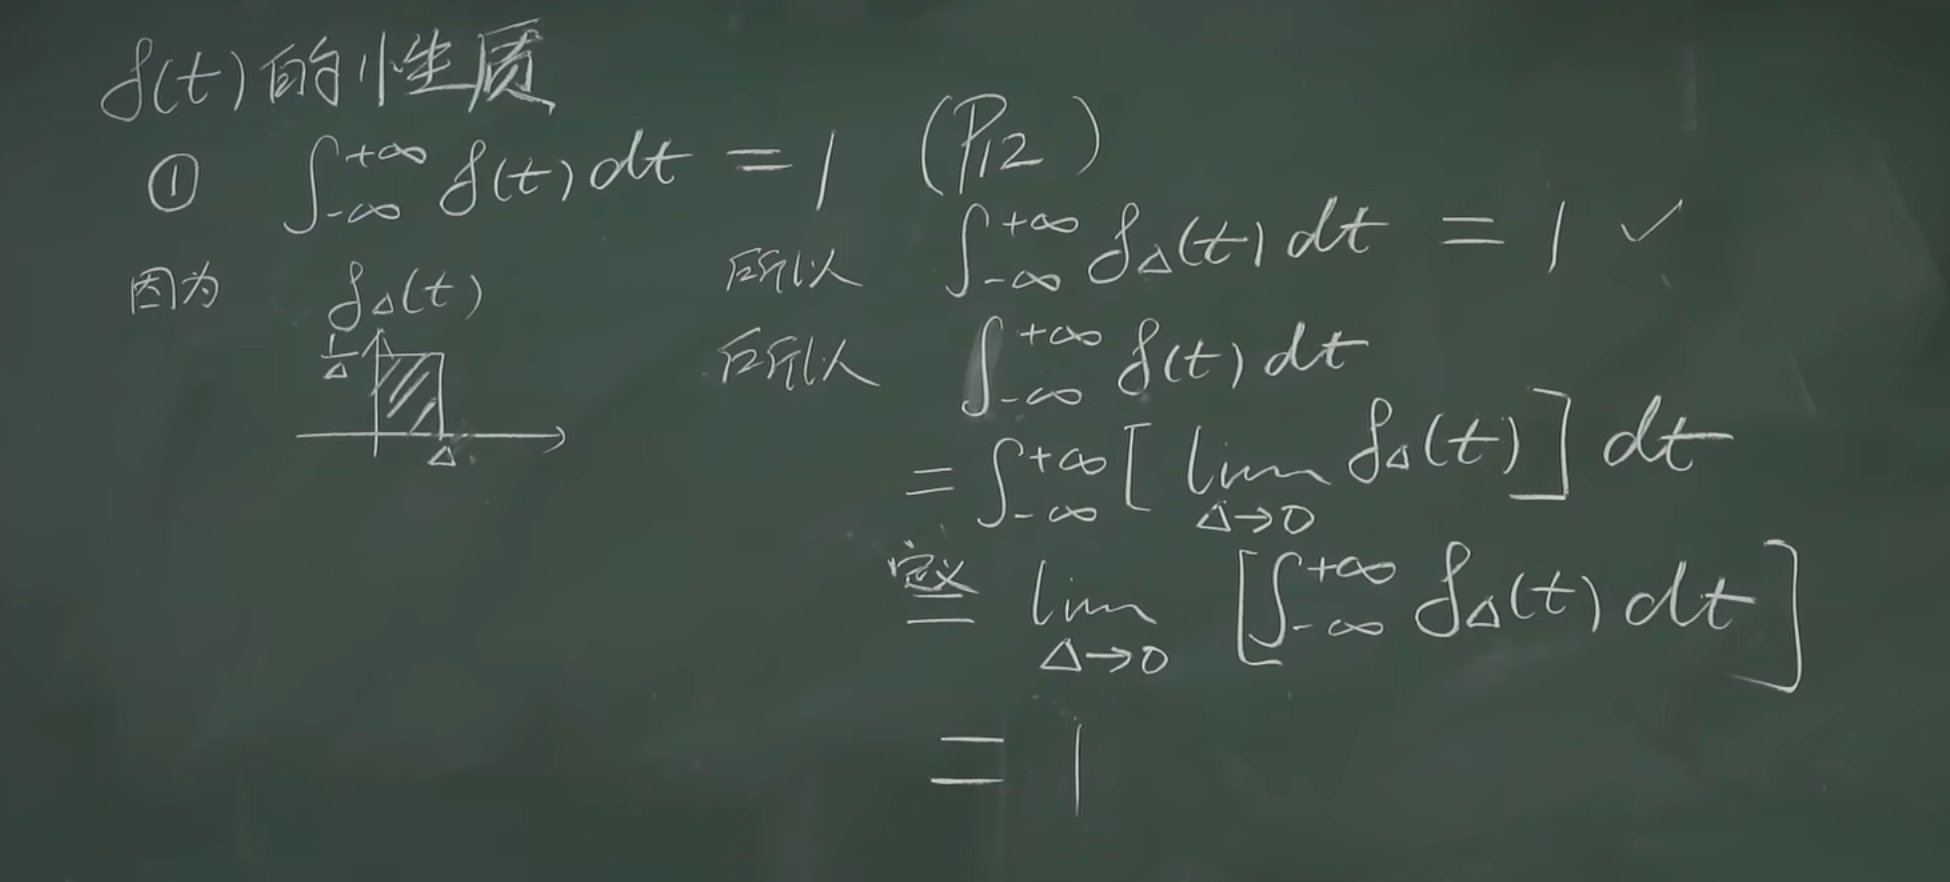 δ(t)的性质
① ∫_{-∞}^{+∞} δ(t) dt = 1 (P12)
因为 δ_Δ(t)
1/Δ
Δ
所以 ∫_{-∞}^{+∞} δ_Δ(t) dt = 1 ✓
所以 ∫_{-∞}^{+∞} δ(t) dt
= ∫_{-∞}^{+∞} [ lim_{Δ→0} δ_Δ(t) ] dt
定义
= lim_{Δ→0} [ ∫_{-∞}^{+∞} δ_Δ(t) dt ]
= 1